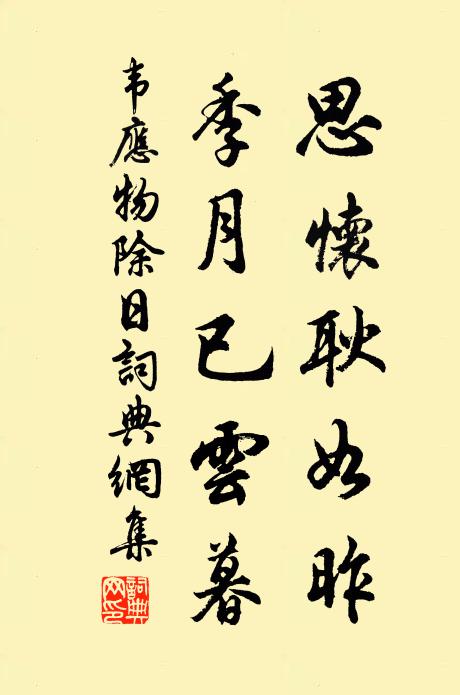 思懷耿如昨
季月已雲暮
韦應物除日詞典網集
詞典
网印